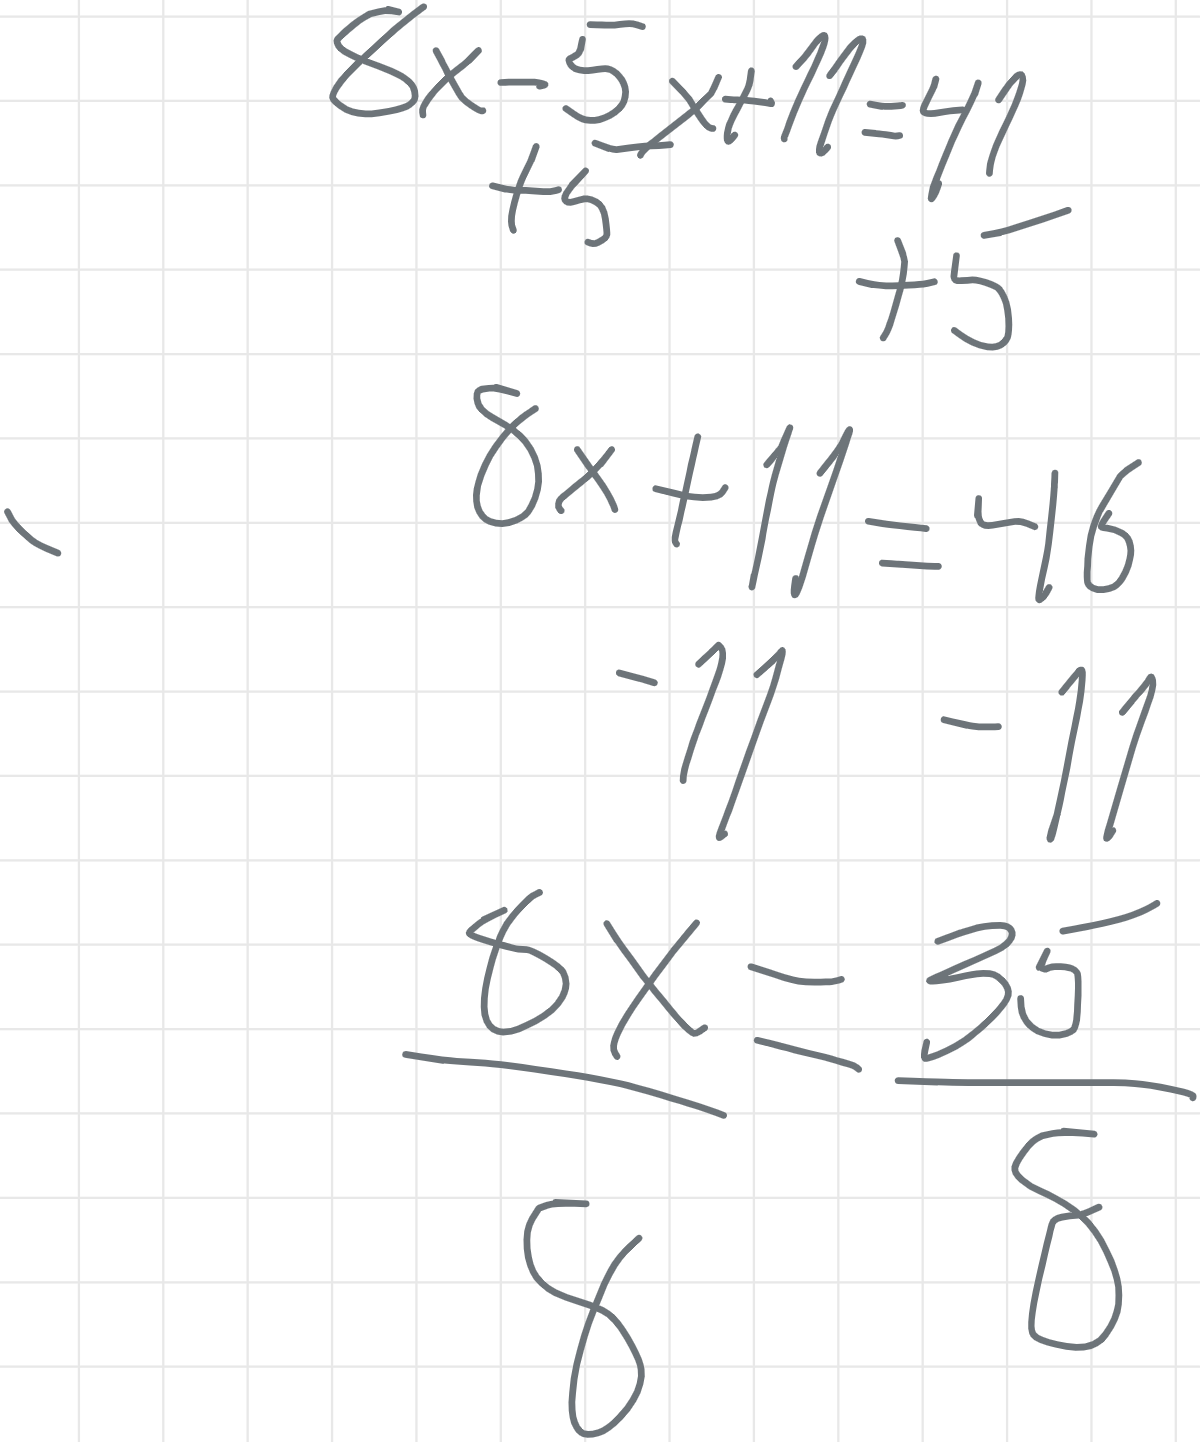 8x-5x+11=41
+5
+5
8x+11=46
-11 -11
8x=35
8 8